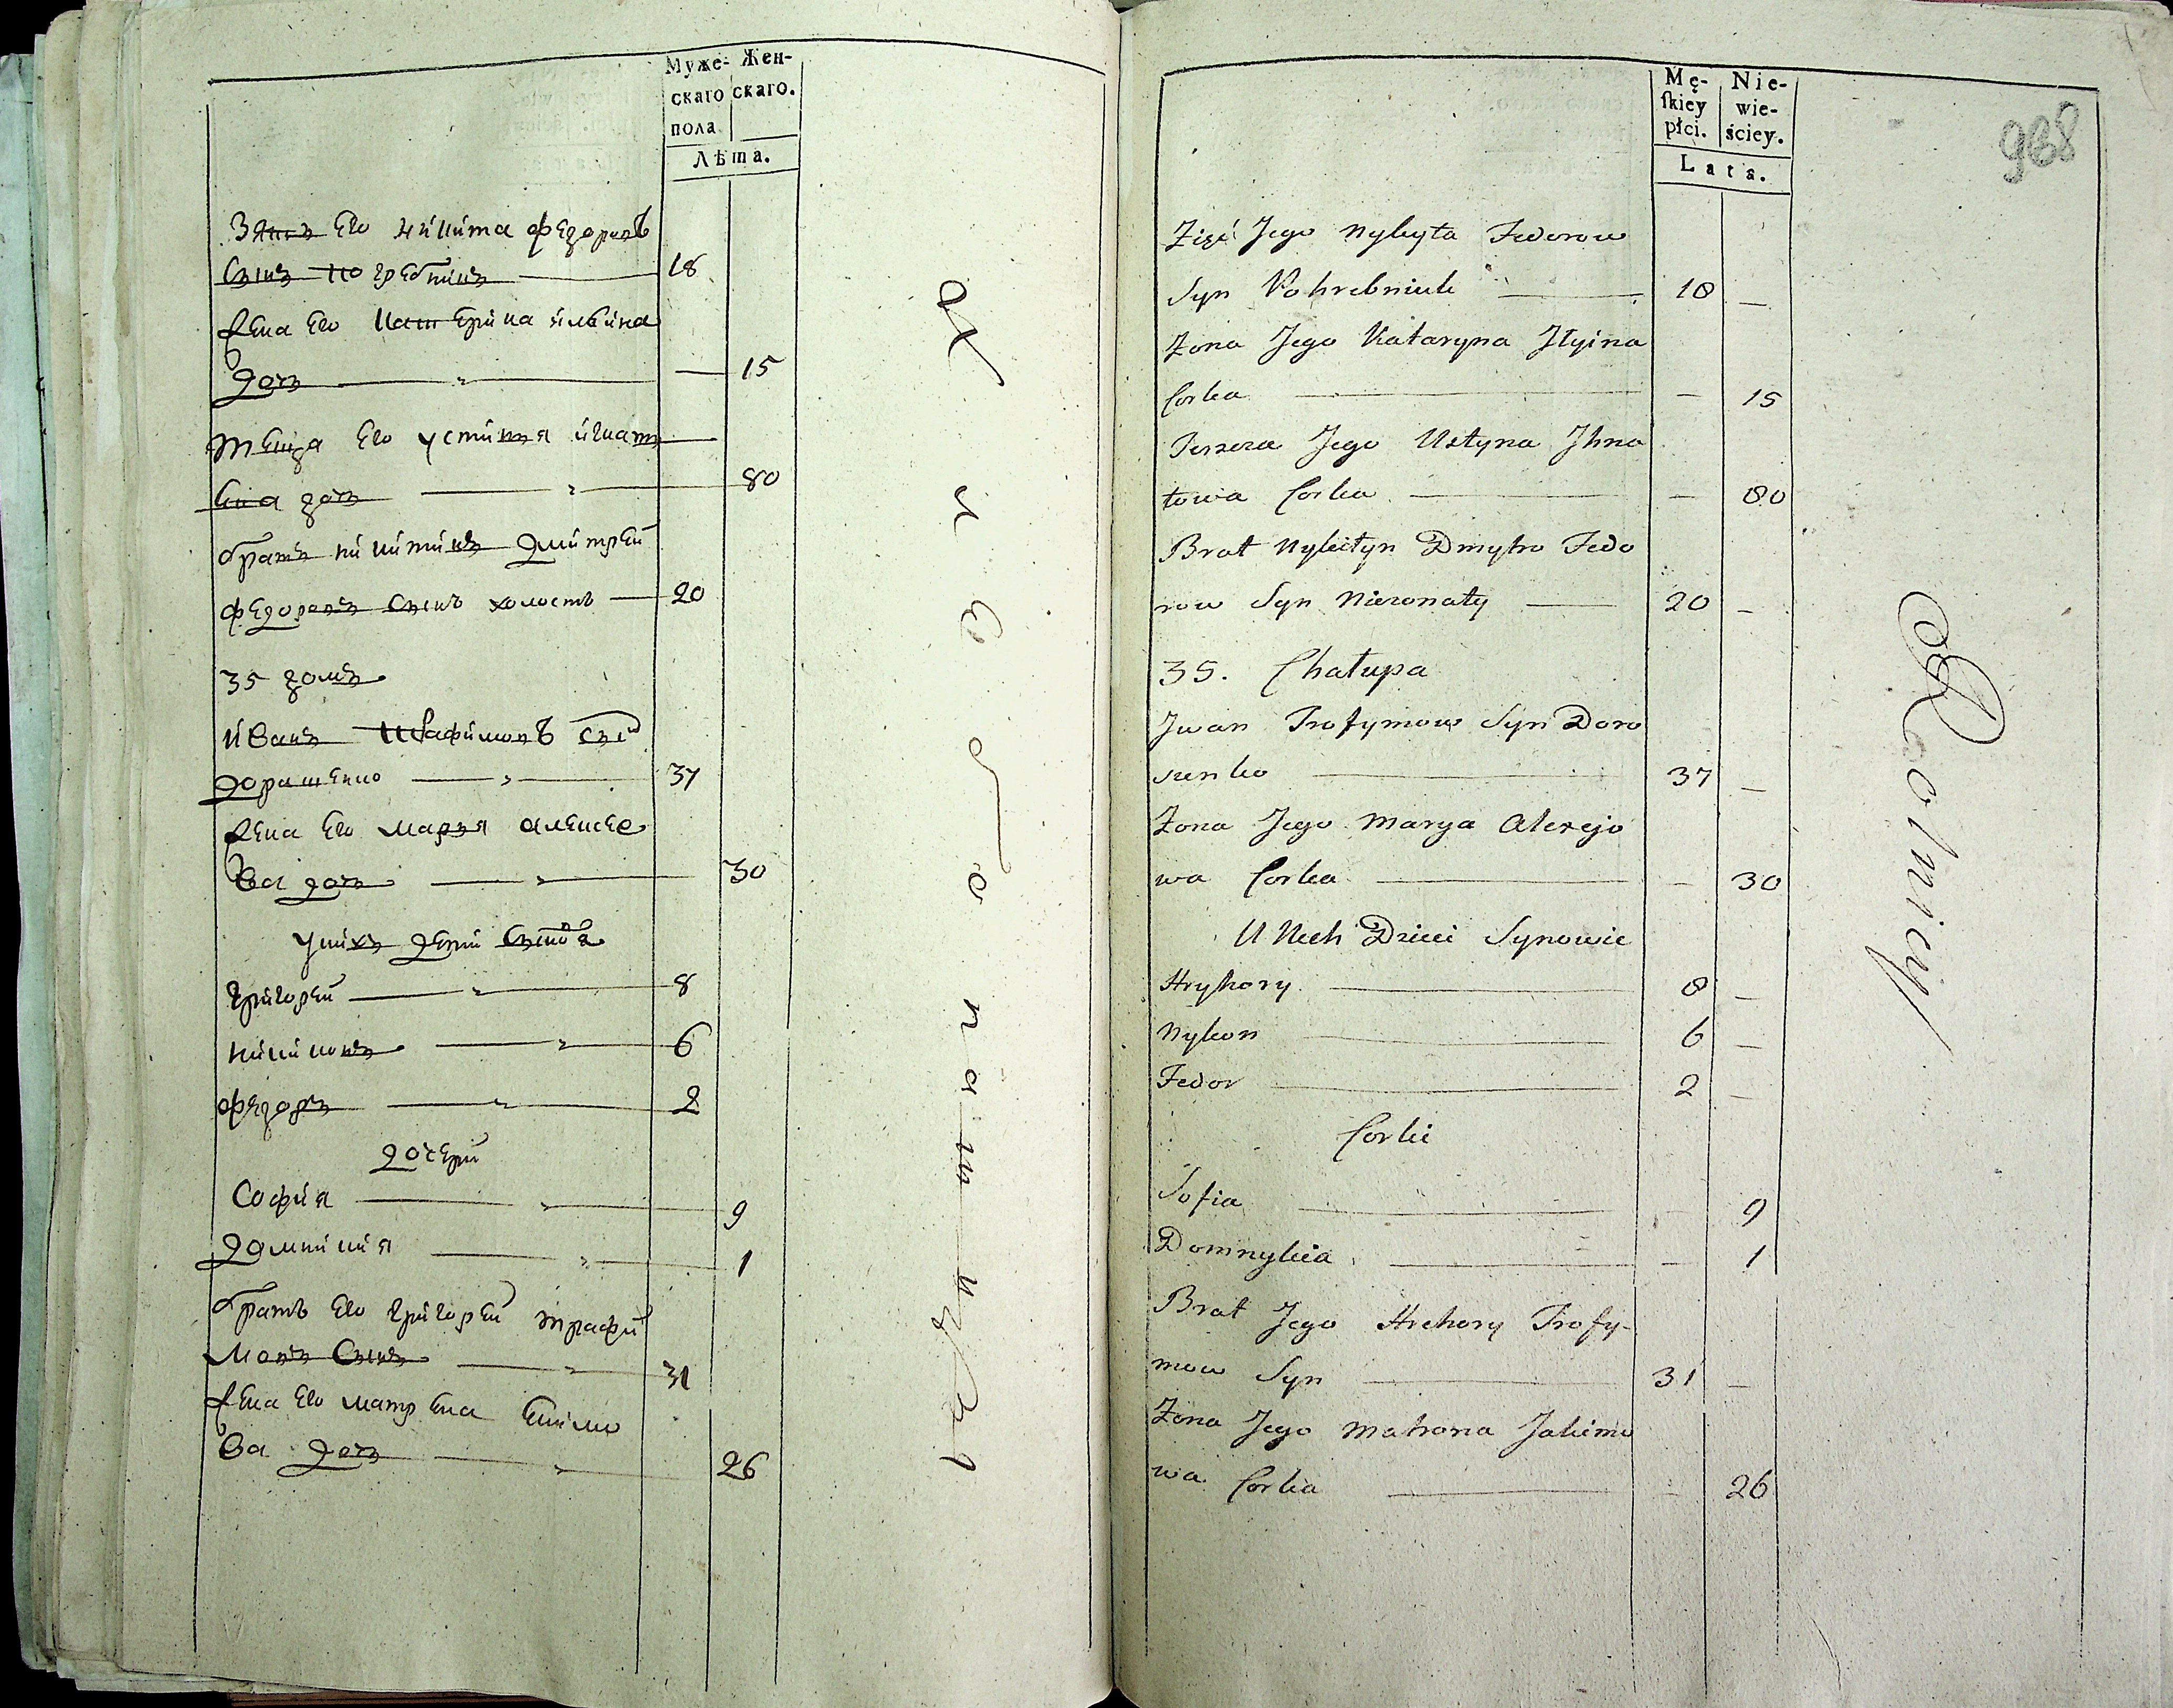 Муже- Жен-
скаго скаго.
пола
Лѣта.
Зять Его никита федоровъ
сынъ погребникъ 18
жена Его катерина ильина
дочь 15
теща Его устиния игнать
ева дочь 80
братъ никитинъ дмитрей
федоровъ сынъ холостъ 20
35 домъ
иванъ трафимовъ снъ
дорашенко 37
жена Его марья алексее
ва дочь 30
у них дети сыновя
григорей 8
никионъ 6
федоръ 2
дочери
София 9
домникия 1
братъ Его григорей трафи
мовъ Сынъ 31
жена Его матрена Екимо
ва дочь 26
Mę- Nie-
skiey wie-
płci. ściey.
Lata.
968
Zięć Jego Nykyta Fedorow
Syn Pohrebniuk 18 —
Żona Jego Kataryna Jłyina
Corka — 15
Teszcza Jego Ustyna Jhna
towa Corka — 80
Brat Nykityn Dmytro Fedo
row Syn Niezonaty 20 —
35. Chałupa
Jwan Trofymow Syn Doro
szenko 37 —
Żona Jego Marya Alexejo
wa Corka — 30
U Nich Dzieci Synowie
Hryhory 8 —
Nykon 6 —
Fedor 2 —
Corki
Sofia — 9
Domnykia — 1
Brat Jego Hrehory Trofy-
mow Syn 31 —
Żona Jego Matrona Jakimo
wa Corka — 26
Rolnicy